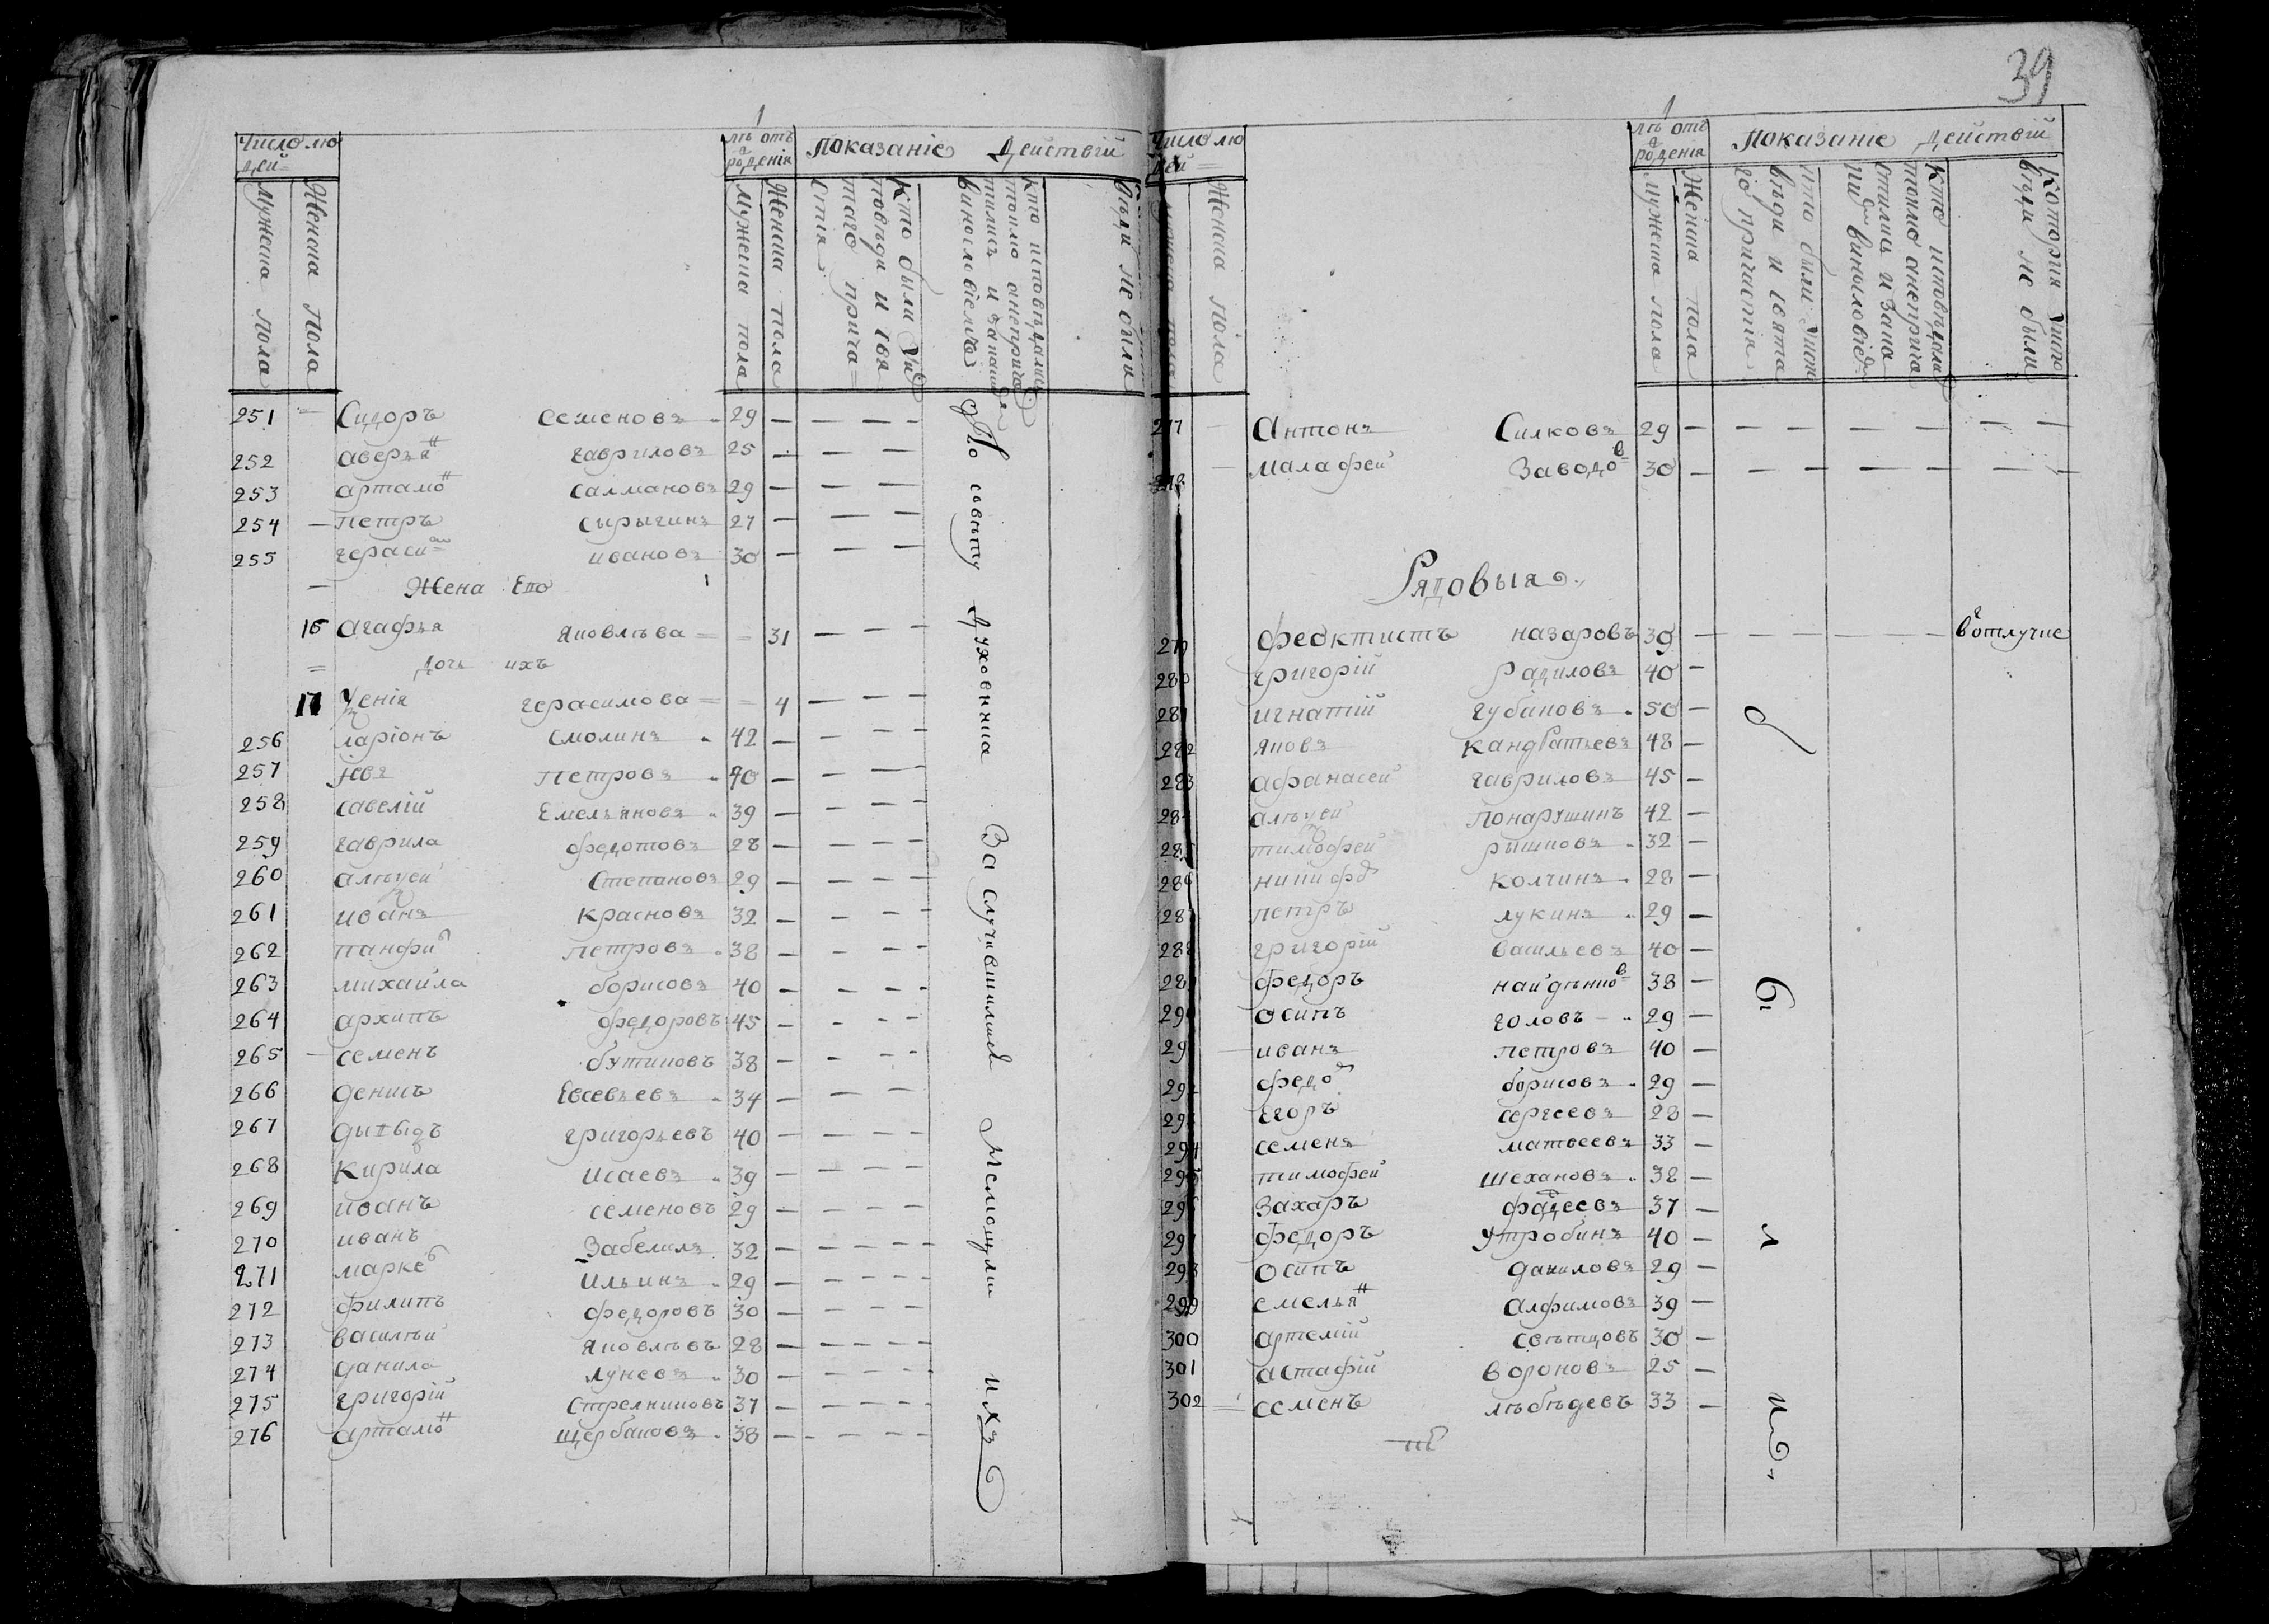 39
Число лю
дей
лѣтъ отъ
рожденія
показаніе действій
мужеска пола
Женска пола
мужеска пола
Женска пола
Кто были у ис
повѣди и свя
таго прича=
стія
кто исповѣдались
токмо а не прича
тились и за каким
винословіемъ
вѣди не были
251 Сидоръ Семеновъ 29
252 аверья н гавриловъ 25
253 артамо н салмановъ 29
254 петръ сырыгинъ 27
255 гераси м ивановъ 30
Жена Его
16 агафья яковлѣва 31
дочь ихъ
17 герасимова 4
256 ларіонъ смолинъ 42
257 петровъ 40
258 савелій Емельяновъ 39
259 гаврила федотовъ 28
260 алѣѯей степановъ 29
261 иванъ красновъ 32
262 панфи л петровъ 38
263 михайла борисовъ 40
264 архипъ федоровъ 45
265 семенъ бутиковъ 38
266 денисъ Евсевьевъ 34
267 григорьевъ 40
268 кирила исаевъ 39
269 иванъ семеновъ 29
270 иванъ Забелинъ 32
271 марке л ильинъ 29
272 филипъ федоровъ 30
273 василѣй яковлѣвъ 28
274 данила луневъ 30
275 григорій стрелниковъ 37
276 артамо н щербаковъ 38
По совѣту духовника За случившимися ихъ
Число лю
дей
лѣтъ отъ
рожденія
показаніе действій
мужеска пола
Женска пола
мужеска пола
Женска пола
кто были у испо
вѣди и свята
го причастія
Кто исповѣдались
токмо а не прича
стились и за ка
ким винословіем
Которыя у испо
вѣди не были
277 Антонъ Силковъ 29
278 малафей Заводо в 30
Рядовыя
279 феоктистъ назаровъ 39 в отлучке
280 григорій Радиловъ 40
281 игнатій губановъ 50
282 яковъ кандратьевъ 48
283 афанасей гавриловъ 45
284 алѣѯей понарушинъ 42
285 тимофей рышковъ 32
286 никифо р колчинъ 28
287 петръ лукинъ 29
288 григорій васильевъ 40
289 федоръ найдѣнко в 38
290 осипъ головъ 29
291 иванъ петровъ 40
292 федо р борисовъ 29
293 Егоръ сергеевъ 28
294 семенъ матвеевъ 33
295 тимофей шехановъ 38
296 Захаръ фадеевъ 37
297 федоръ Утробинъ 40
298 осипъ даниловъ 29
299 емелья н алфимовъ 39
300 артемій свѣтцовъ 30
301 астафій вороновъ 25
302 семенъ лѣбѣдевъ 33
б
ы
л
и